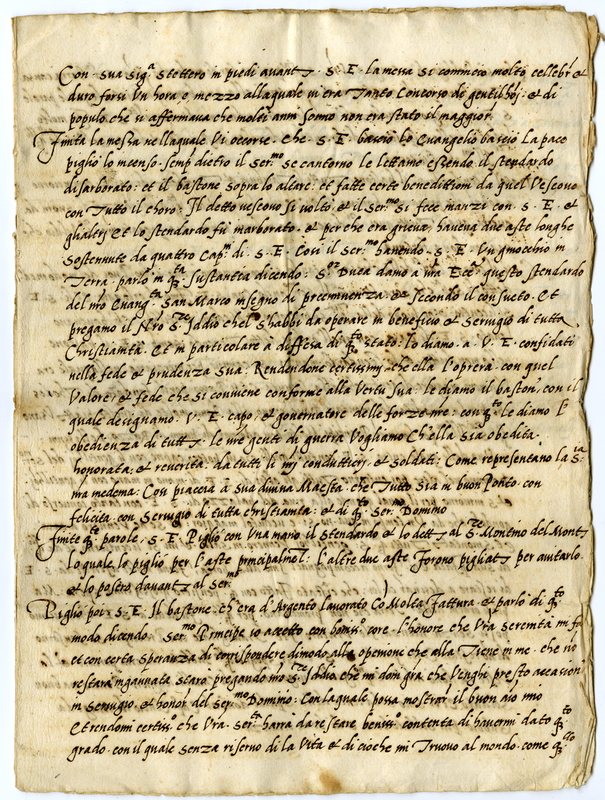 Con sua sig.ª stettero in piedi avanti S. E. la messa si cominciò molto cellebre &
duro forsi Un hora e mezzo alla quale vi era Tanto Concorso de gentilhõj. & di
populo che si affermava che molti anni sonno non era stato il maggior.
Finita la messa nella quale Vi occorse. che. S. E. basciò lo Euangelio basciò La pace
piglio lo incenso. semp dietro il Ser.mo se cantorno le lettanie essendo il stendardo
disarborato: et il bastone sopra lo altare: et fatte certe benedittioni da quel Vescovo
con Tutto il choro: Il detto vescovo si voltò & il Ser.mo si fece inanzi con. S. E. &
gli altri Et lo stendardo fu inarborato. & per che era grieve, haveva due aste longhe
sostennute da quattro Cap.ni di. S. E. Cosi il Ser.mo havendo. S. E. Un ginocchio in
Terra. parlò in q.ta sustantia dicendo: S.or Duca damo a vra Ecc.ª questo stendardo
del nr̃o Euang.ta San Marco insegno di preeminenza. & secondo il consueto. Et
pregamo il Nr̃o S.re Iddio che lo s'habbi da operare in beneficio & servigio di tutta
Christianità. Et in particolare à diffesa di q.to stato: lo diamo. a. V. E. confidati
nella fede et prudenza sua. Rendendone certissimj che ella l'opererà. con quel
Valore, & fede che si conviene conforme alla Vertù sua: le diamo il baston, con il
quale designamo. V. E. capo, & governatore delle forze nr̃e: con q.to le diamo l
obedienza di tutti. le nr̃e genti di guerra Vogliamo Ch'ella sia obedita.
honorata: & reverita: da tutti li nrj conduttierj, & soldati: Come representano la S.ria
nr̃a medema: Cosi piaccia à sua divina Maestà. che Tutto sia in buon Ponto. con
felicità con servigio di tutta christianità: & di q.to Ser.mo Dominio
Finite q.te parole. S. E. Piglio con Una mano il stendardo & lo dette al S.re Montino del Monte
lo quale lo piglio per l'aste principalmẽt: l'altre due aste forono pigliate per aiutarlo.
& lo posero davanti al Ser.mo
Piglio poi. S. E. Il bastone. ch'era d'Argento lavorato Cõ Molta fattura. & parlò di q.to
modo dicendo. Ser.mo Principe io accetto con boniss.o core. l'honore che Vr̃a serenità mi fa
et con certa speranza di corrispondere di modo alla openione che ella Tiene in me. che nõ
restara ingannata staro pregando nr̃o S.re Iddio, che mi doni gra che Venghi presto accasion
in servigio, & honor del Ser.mo Dominio: Con la quale possa mostrar il buon aĩo mio
Et rendomi certiss.o che Vr̃a. Ser.tà harra da restare beniss.o contenta di havermi dato q.to
grado. con il quale senza riservo di la Vita & di cioche mi Truovo al mondo. come q.llo